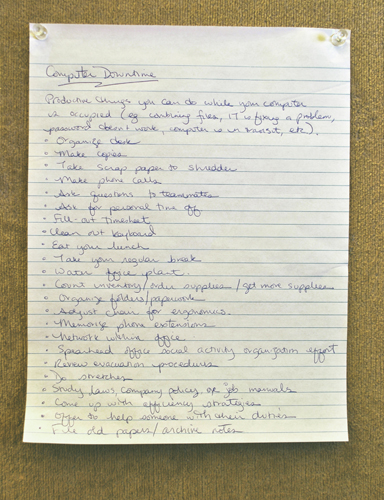 Computer Downtime
Productive things you can do while your computer
is occupied (eg combining files, IT is fixing a problem,
password doesn't work, computer is in transit, etc).
• Organize desk
• Make copies
• Take scrap paper to shredder
• Make phone calls
• Ask questions to teammates
• Ask for personal time off
• Fill out timesheet
• Clean out keyboard
• Eat your lunch
• Take your regular break
• Water office plant.
• Count inventory/order supplies/get more supplies
• Organize folders/paperwork
• Adjust chair for ergonomics.
• Memorize phone extensions
• Network within office
• Spearhead office social activity organization effort
• Review evacuation procedures
• Do stretches
• Study laws, company policy, or job manuals
• Come up with efficiency strategies
• Offer to help someone with their duties
• File old papers/archive notes